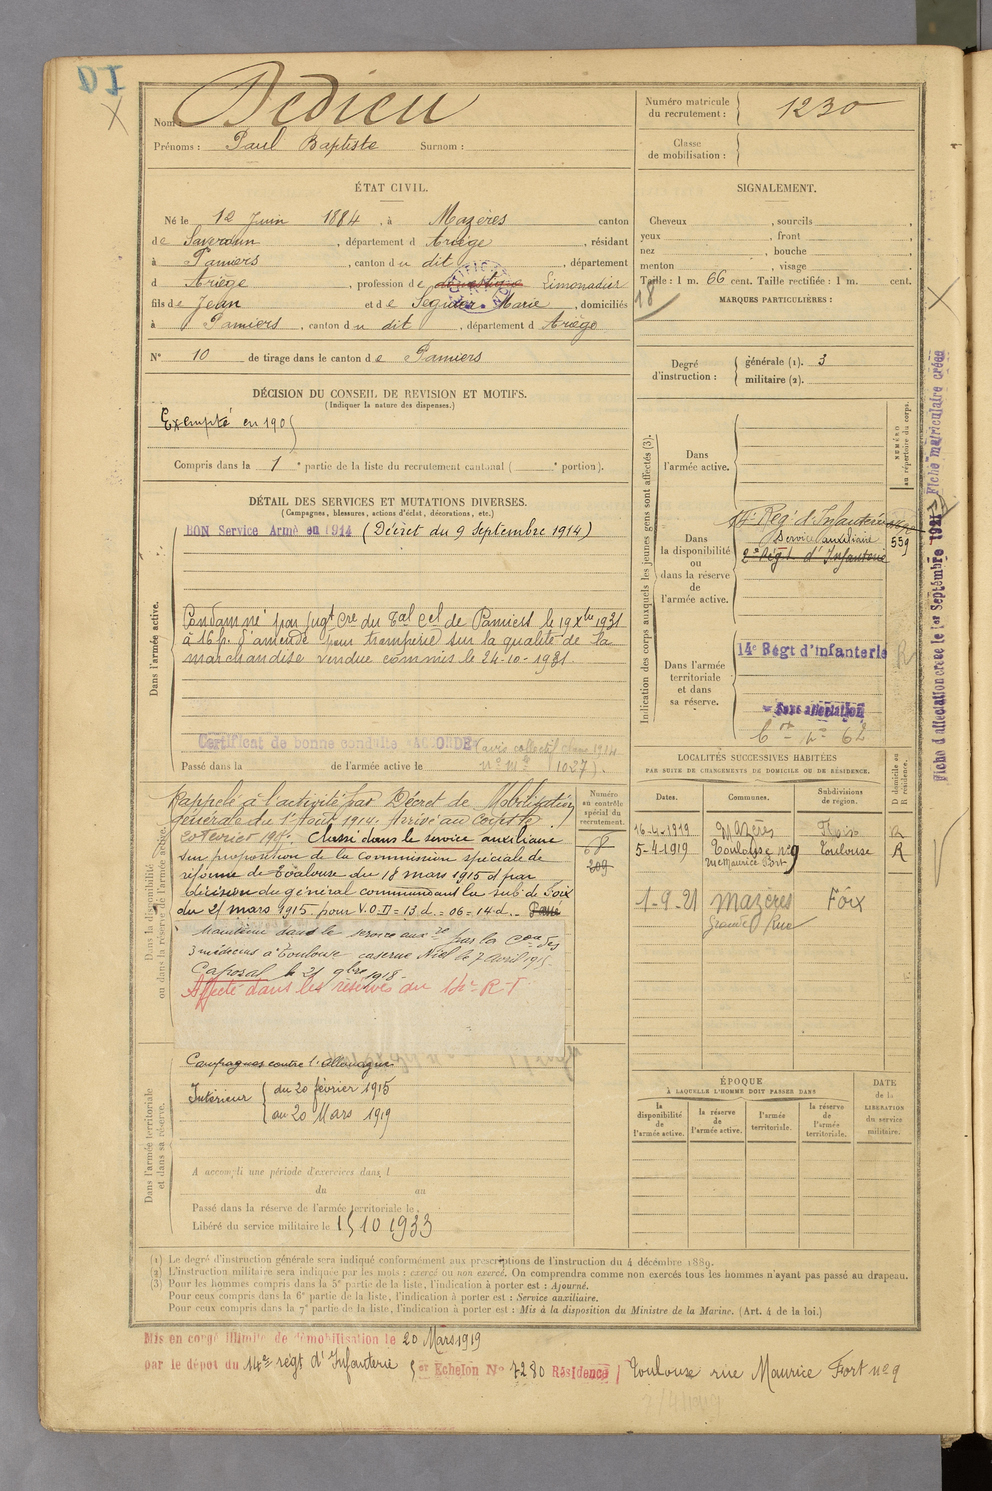 DI
Nom : Dedieu
Prénoms : Paul Baptiste Surnom :
Numéro matricule du recrutement : 1230
Classe de mobilisation :
ÉTAT CIVIL.
Né le 12 Juin 1884, à Mazères canton
de Saverdun, département d Ariège, résidant
à Pamiers, canton du dit, département
d Ariège, profession de domestique Limonadier
fils de Jean et de Segider Marie, domiciliés
à Pamiers, canton du dit, département d Ariège
N° 10 de tirage dans le canton de Pamiers
SIGNALEMENT.
Cheveux , sourcils
yeux , front
nez , bouche
menton , visage
Taille : 1 m. 66 cent. Taille rectifiée : 1 m. cent.
18
MARQUES PARTICULIÈRES :
Degré d'instruction : générale (1). 3
militaire (2).
DÉCISION DU CONSEIL DE REVISION ET MOTIFS.
(Indiquer la nature des dispenses.)
Exempté en 1905
Compris dans la 1e partie de la liste du recrutement cantonal ( e portion).
DÉTAIL DES SERVICES ET MUTATIONS DIVERSES.
(Campagnes, blessures, actions d'éclat, décorations, etc.)
Dans l'armée active.
BON Service Armé en 1914 (Décret du 9 Septembre 1914)
Condamné par jugt cre du Tal Cel de Pamiers le 19 Xbre 1931
à 16 f. d'amende pour tromperie sur la qualité de la
marchandise vendue commis le 24-10-1931.
Certificat de bonne conduite ACCORDÉ (avis collectif 1914
Passé dans la de l'armée active le n° 1027).
Dans la disponibilité ou dans la réserve de l'armée active.
Rappelé à l'activité par Décret de Mobilisation
générale du 1er Août 1914. Arrivé au Corps le
20 février 1915. Classé dans le service auxiliaire
sur proposition de la Commission spéciale de
réforme de Toulouse du 18 mars 1915 et par
décision du général commandant la sub. de Foix
du 21 mars 1915 pour V.O.D = 13.d. = 06 = 14.d. Passé
Maintenu dans le service auxre par la Con des
3 médecins à Toulouse caserne Niel le 7 avril 1915.
Caporal le 21 9bre 1918.
Affecté dans les réserves du 14e R-I
Numéro en contrôle spécial du recrutement.
68
209
Dans l'armée territoriale et dans sa réserve.
Campagnes contre l'Allemagne
Intérieur du 20 février 1915
au 20 Mars 1919
A accompli une période d'exercices dans l
du au
Passé dans la réserve de l'armée territoriale le
Libéré du service militaire le 15 10 1933
Indication des corps auxquels les jeunes gens sont affectés (3).
NUMÉRO au répertoire du corps.
Dans l'armée active.
Dans la disponibilité ou dans la réserve de l'armée active.
14e Régt d'Infanterie
Service auxiliaire
559
2e Régt d'Infanterie
Dans l'armée territoriale et dans sa réserve.
14e Régt d'infanterie
R
Sans affectation
LOCALITÉS SUCCESSIVES HABITÉES
PAR SUITE DE CHANGEMENTS DE DOMICILE OU DE RÉSIDENCE.
Dates. Communes. Subdivisions de région. D domicile ou R résidence.
16-4-1919 Mazères Foix R
5-4-1919 Toulouse n° 9 Toulouse R
rue Maurice Fort
1-9-21 Mazères Foix
Grande Rue
ÉPOQUE
À LAQUELLE L'HOMME DOIT PASSER DANS
la disponibilité de l'armée active.
la réserve de l'armée active.
l'armée territoriale.
la réserve de l'armée territoriale.
DATE de la LIBÉRATION du service militaire.
(1) Le degré d'instruction générale sera indiqué conformément aux prescriptions de l'instruction du 4 décembre 1889.
(2) L'instruction militaire sera indiquée par les mots : exercé ou non exercé. On comprendra comme non exercés tous les hommes n'ayant pas passé au drapeau.
(3) Pour les hommes compris dans la 5e partie de la liste, l'indication à porter est : Ajourné.
Pour ceux compris dans la 6e partie de la liste, l'indication à porter est : Service auxiliaire.
Pour ceux compris dans la 7e partie de la liste, l'indication à porter est : Mis à la disposition du Ministre de la Marine. (Art. 4 de la loi.)
Mis en congé illimité de démobilisation le 20 Mars 1919
par le dépôt du 14e régt d'Infanterie 5er Echelon N° 7280 Résidence Toulouse rue Maurice Fort n° 9
Fiche d'affectation créée le 1er Septembre 1927 Fiche matriculaire créée